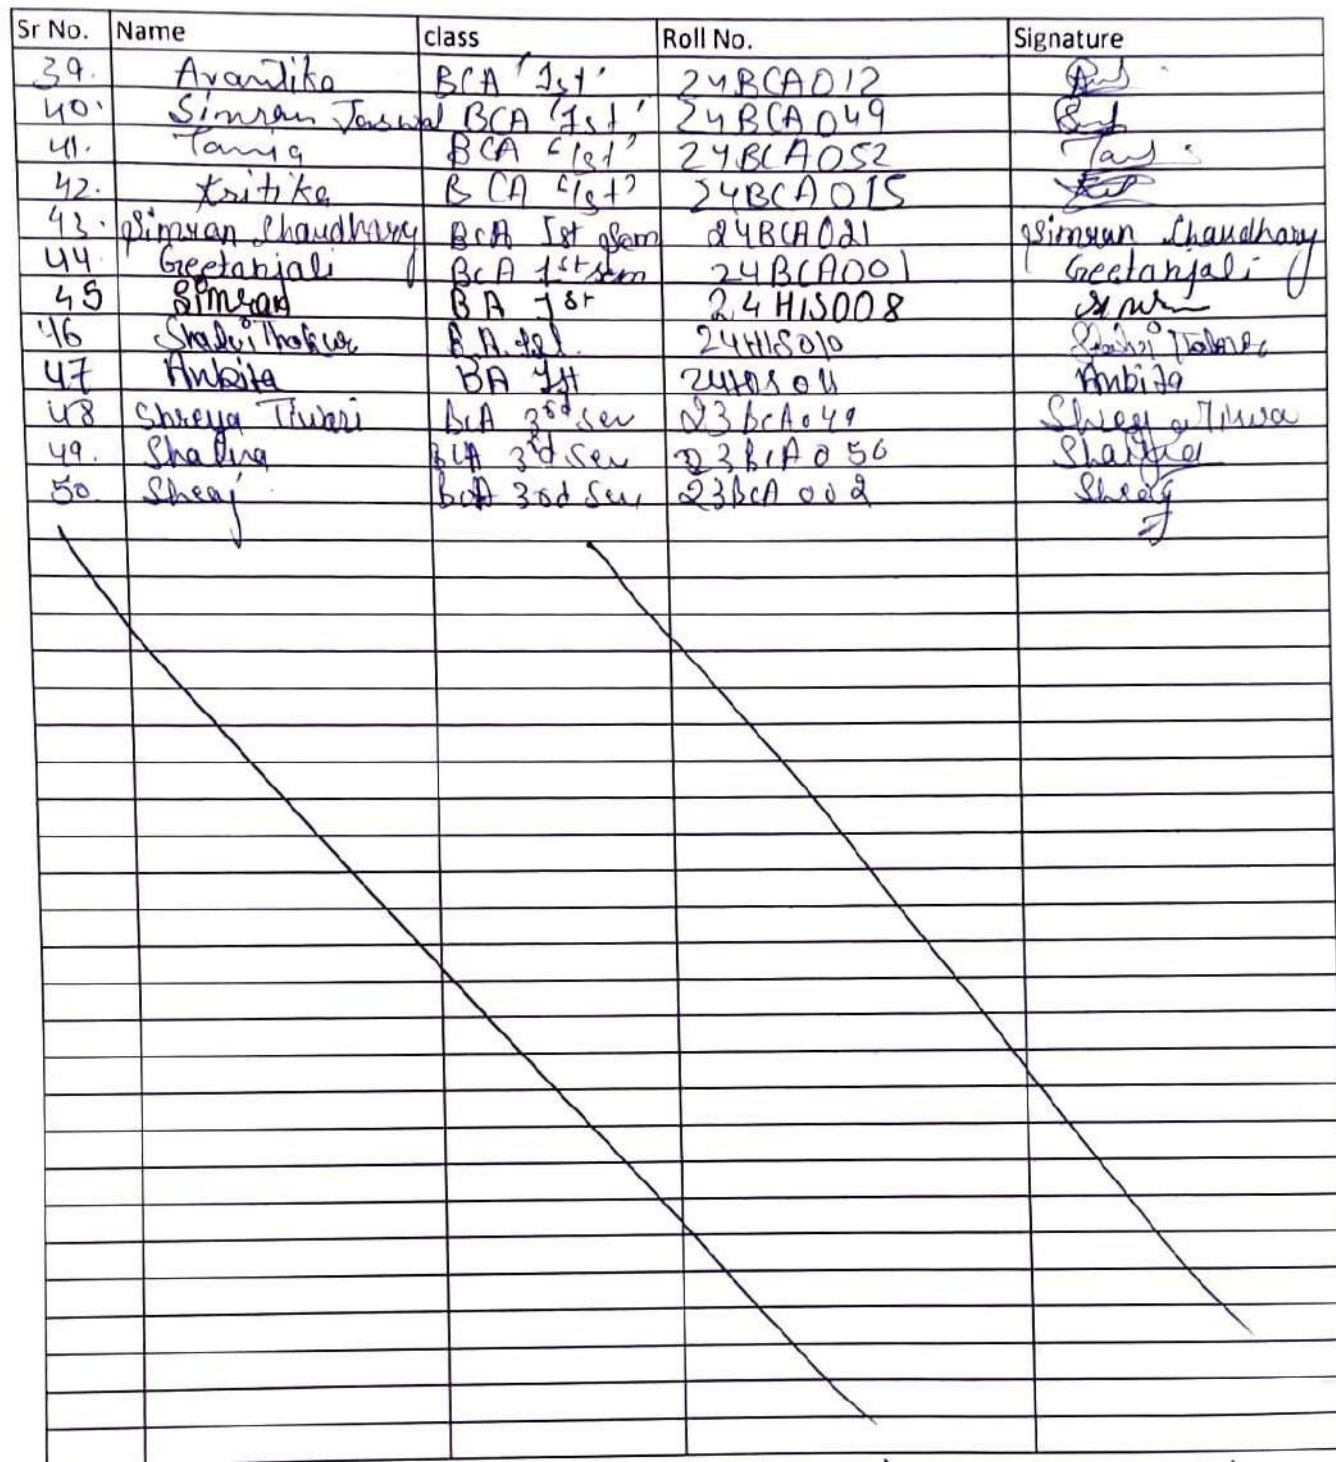 Sr No. Name class Roll No. Signature
39. Avantika BCA 'Ist' 24BCA012
40. Simran Jaswal BCA 'Ist' 24BCA049
41. Tania BCA 'Ist' 24BCA052 Tan
42. Kritika BCA 'Ist' 24BCA015
43. Simran Chaudhary BCA Ist Sem 24BCA021 Simran Chaudhary
44 Geetanjali BCA 1st sem 24BCA001 Geetanjali
45 Simran BA 1st 24HIS008
46 Thakur B.A. 24HIS010
47 Ankita BA Ist 24HIS011 Ankita
48 Shreya Tiwari BCA 3rd Sem 23BCA049 Shreya Tiwa
49. BCA 3rd Sem 23BCA056
50. BCA 3rd Sem 23BCA002